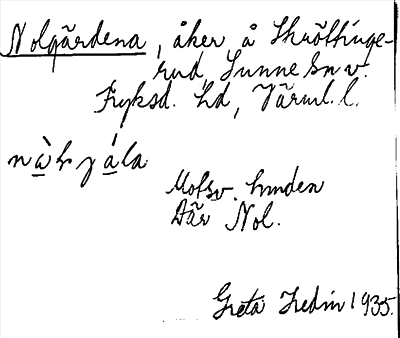 Nolgärdena, åker å Skrölinge-
rud, Sunne sn v.
Fryksd. hd, Värml. l.
Motsv. hunden
Där Nol.
Greta Hedin 1935.